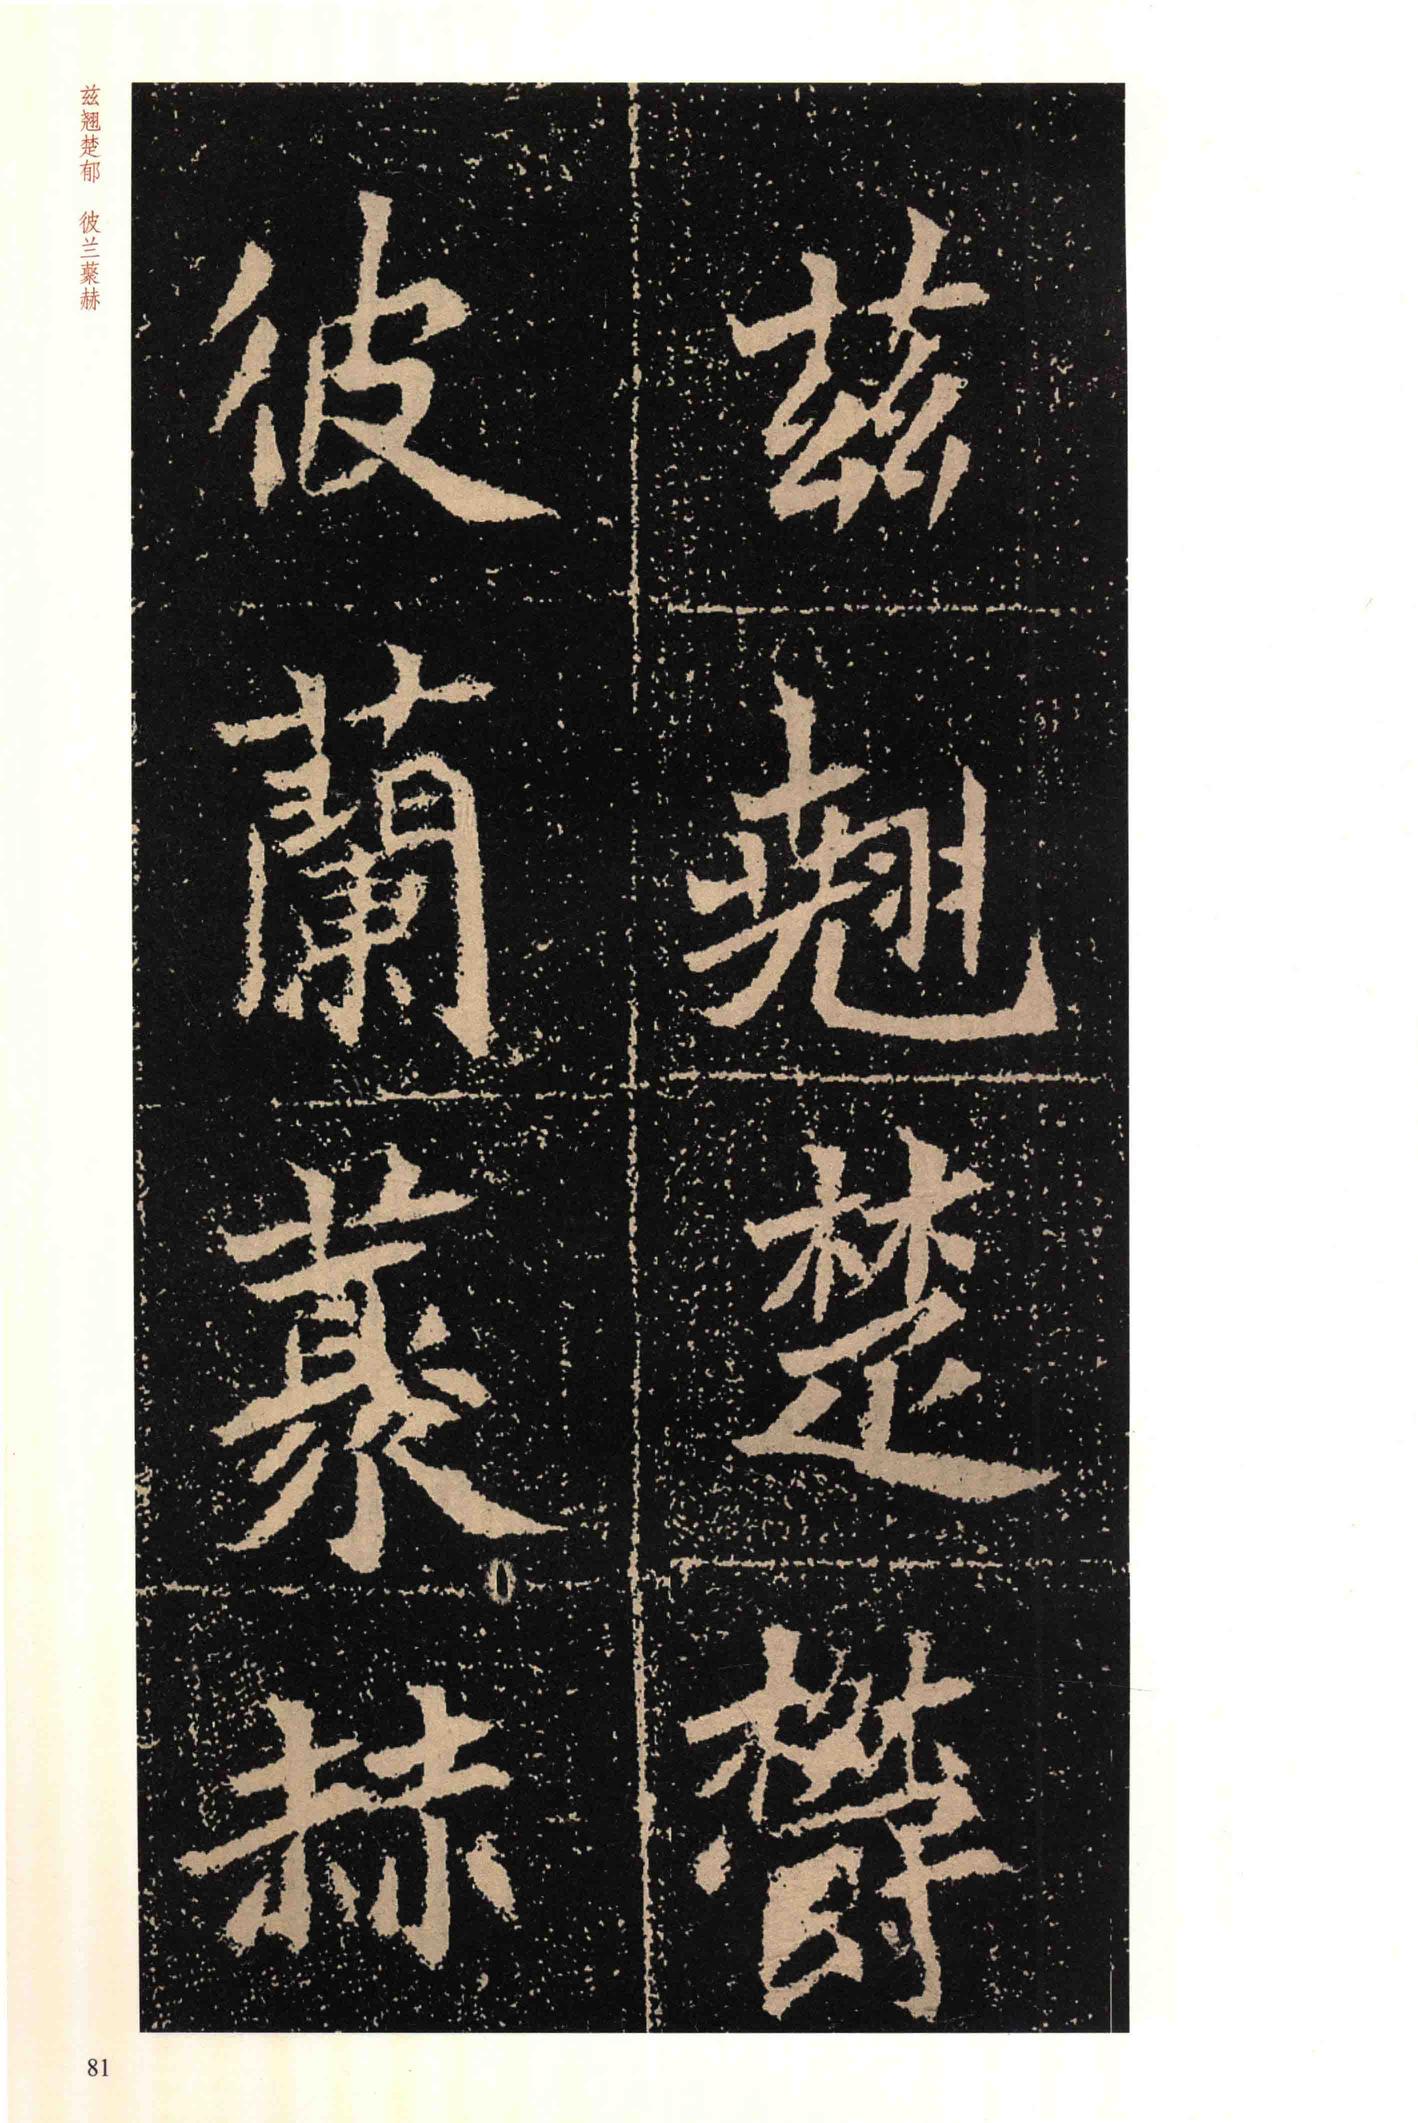 兹翘楚郁　彼兰蕠赫
茲翹楚欝
彼蘭蕠赫
81